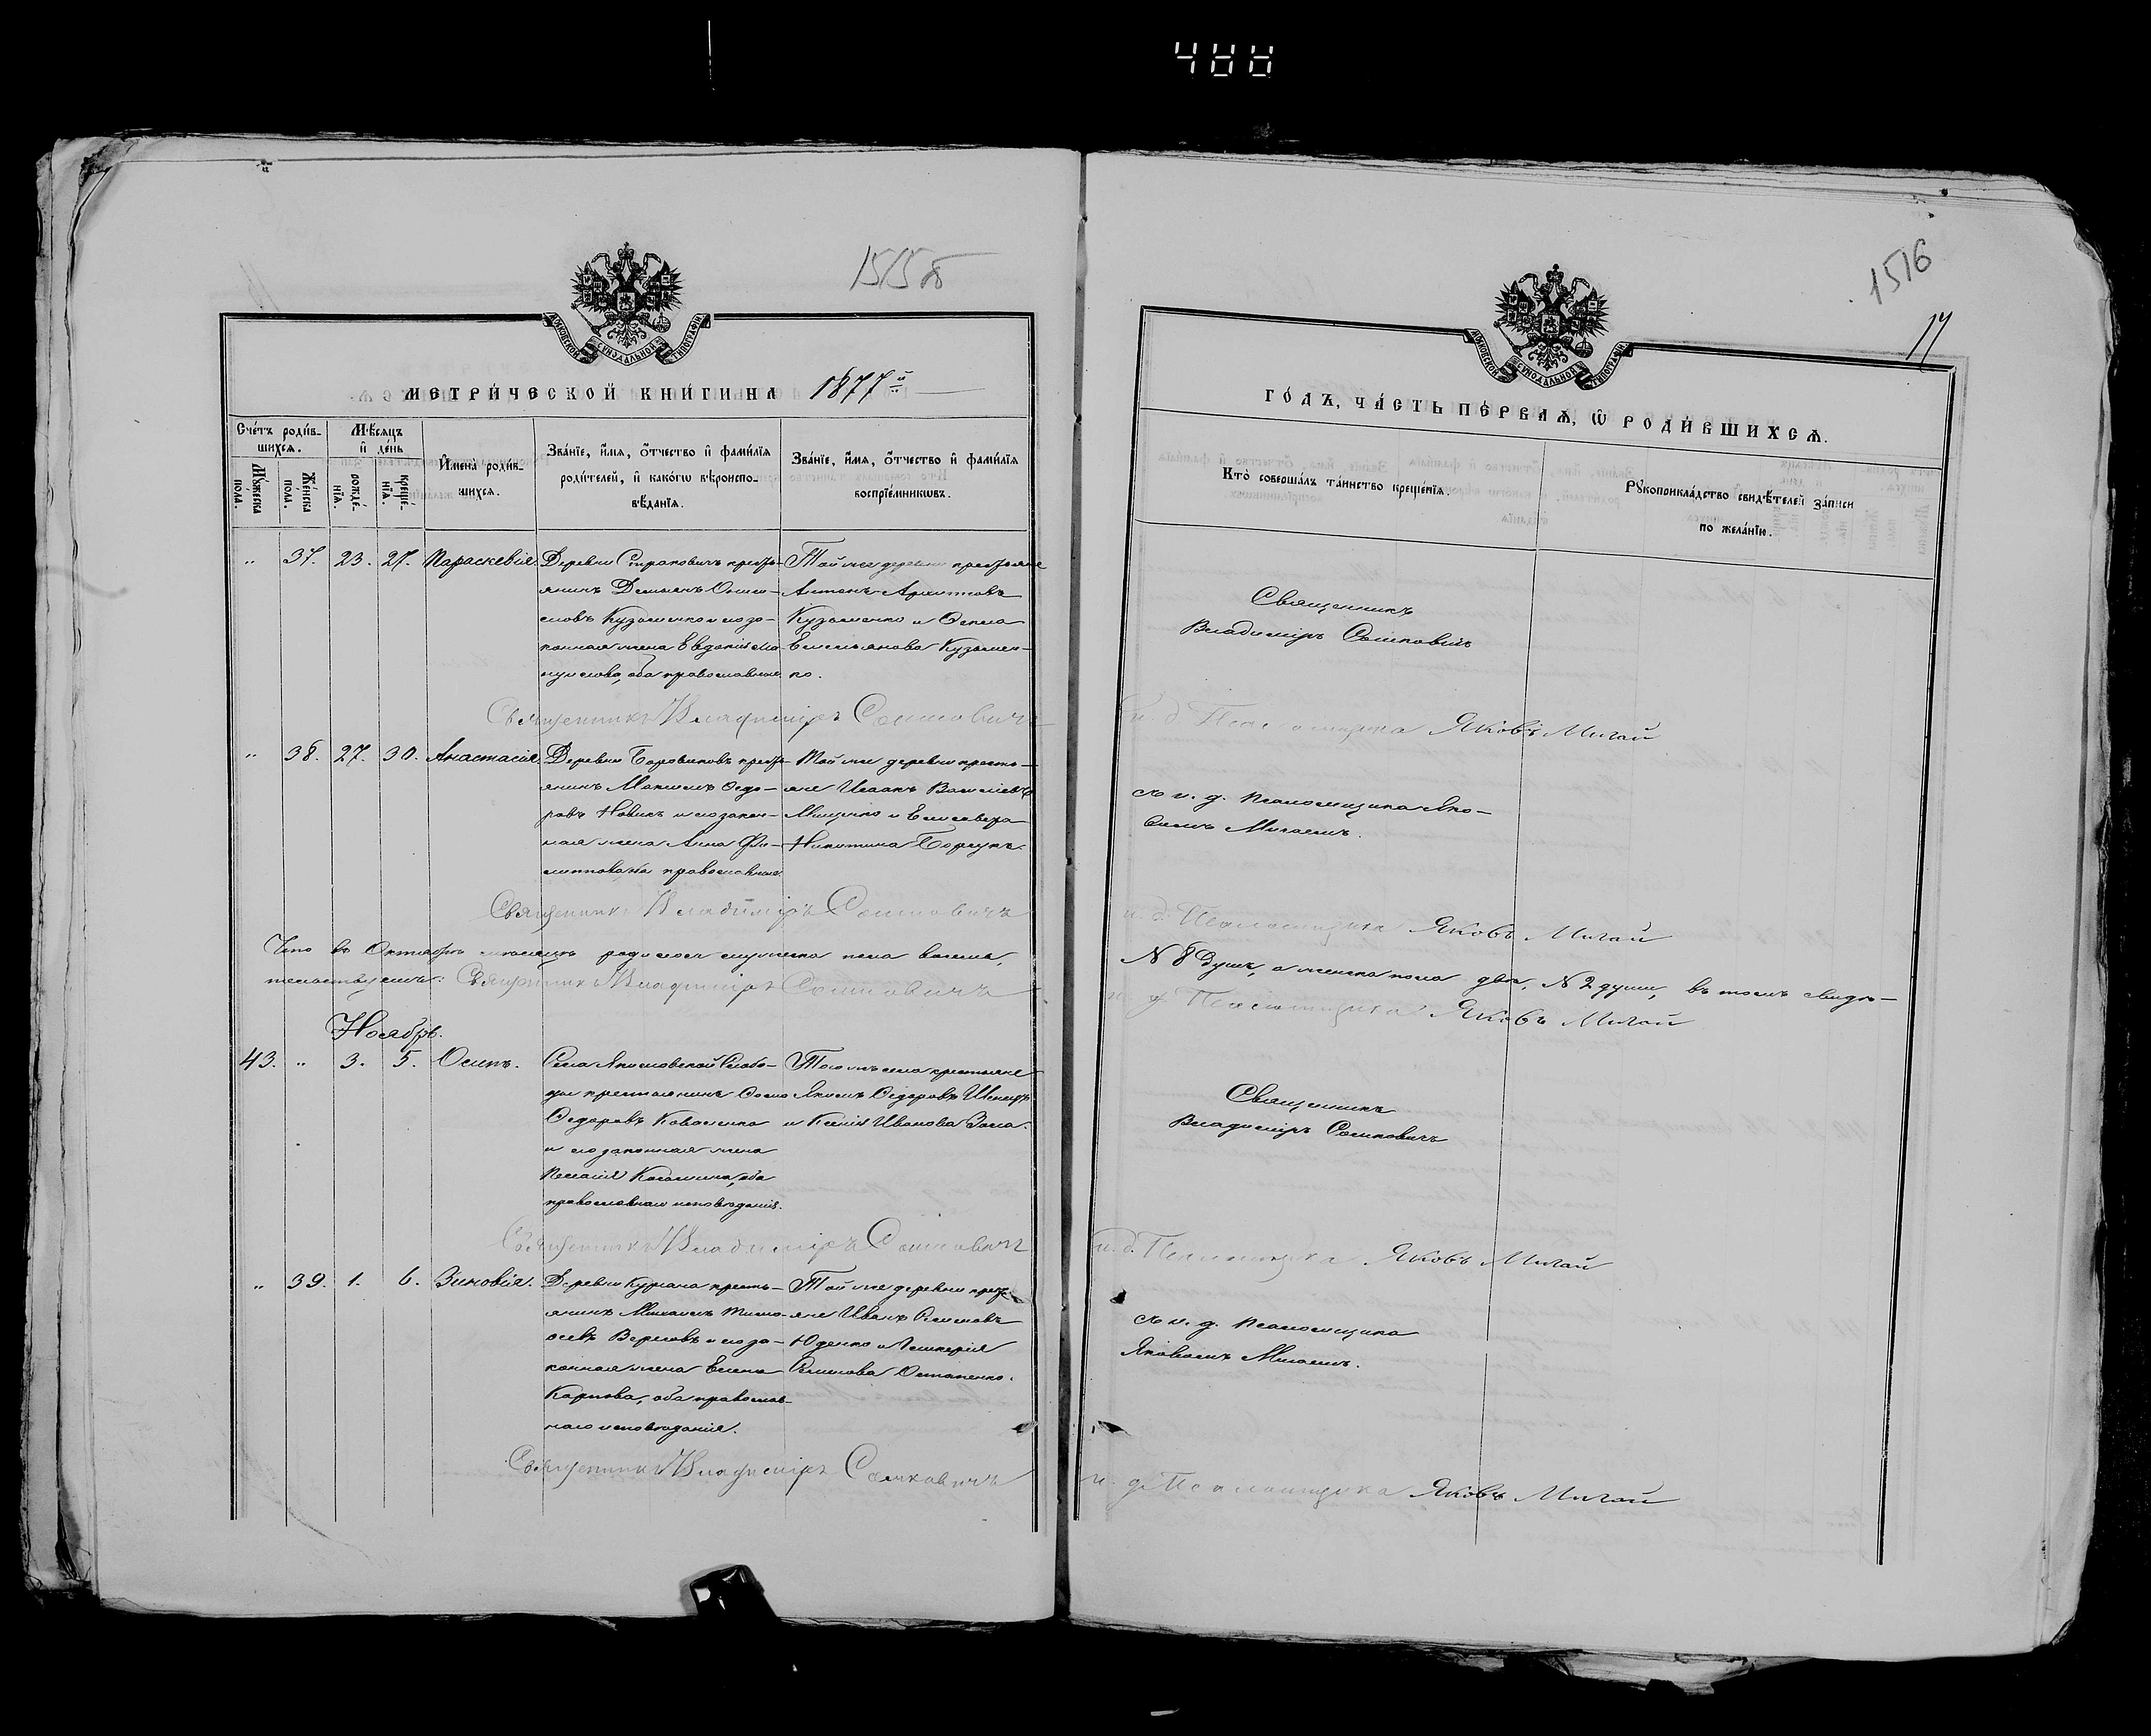 1515 об
МЕТРИ́ЧЕСКОЙ КНИ́ГИ НА 1877й
Сче́тъ роди́в-
шихсѧ.
Мѣ́сѧцъ
и҆ де́нь
Мꙋ́жеска
по́ла.
Же́нска
по́ла.
рожде́-
нїѧ.
креще́-
нїѧ.
И҆мена̀ роди́в-
шихсѧ.
Зва́нїе, и҆́мѧ, ѻ҆́тчество и҆ фами́лїѧ
роди́телей, и҆ како́гѡ вѣроиспо-
вѣ́данїѧ.
Зва́нїе, и҆́мѧ, ѻ҆́тчество и҆ фами́лїѧ
воспрїе́мникѡвъ.
„ 37. 23. 27. Параскевія.
Деревни Страковичъ кресть-
янинъ Демьянъ
Кузьменко и его за-
конная жена Евдокія
оба православные.
Той же деревни крестьяне
Антонъ Архиповъ
Кузьменко и
Емельянова Кузьмен-
ко.
Священникъ Владиміръ Сошковичъ
„ 38. 27. 30. Анастасія.
Деревни Боровиковъ кресть-
янинъ Максимъ Ѳедо-
ровъ Новикъ и его закон-
ная жена Анна Фи-
липпова, оба православные.
Той же деревни кресть-
яне Исаакъ Васильевъ
Мищенко и Елисавета
Никитина Борсукъ.
Священникъ Владиміръ Сошковичъ
Что въ Октябрѣ мѣсяцѣ родилось мужеска пола восемь,
тельствуемъ: Священникъ Владиміръ Сошковичъ
Ноябрь.
43. „ 3. 5. Осипъ.
Села Якимовской Слобо-
ды крестьянинъ
Ѳедоровъ Коваленко
и его законная жена
Пелагія оба
православнаго исповѣданія.
Того же села крестьяне
Якимъ Ѳедоровъ
и Ксенія Иванова
Священникъ Владиміръ Сошковичъ
„ 39. 1. 6. Зиновія.
Деревни кресть-
янинъ Михаилъ Тимо-
ѳеевъ и его за-
конная жена Елена
Карпова, оба православ-
наго исповѣданія.
Той же деревни кресть-
яне Иванъ
Юденко и Гликерія
Климова Остапенко.
Священникъ Владиміръ Сошковичъ
1516
17
ГО́ДЪ, ЧА́СТЬ ПЕ́РВАѦ, Ѡ҆ РОДИ́ВШИХСѦ.
Кто̀ соверша́лъ та́инство креще́нїѧ.
Рꙋкоприкла́дство свидѣ́телей за́писи
по жела́нїю.
Священникъ
Владиміръ Сошковичъ
и. д. Псаломщика Яковъ Мигай
съ и. д. Псаломщика Яко-
вомъ Мигаемъ.
и. д. Псаломщика Яковъ Мигай
№ 8 душъ, а женска пола двѣ, № 2 души, въ томъ свидѣ-
и. д. Псаломщика Яковъ Мигай
Священникъ
Владиміръ Сошковичъ
и. д. Псаломщика Яковъ Мигай
съ и. д. Псаломщика
Яковомъ Мигаемъ.
и. д. Псаломщика Яковъ Мигай